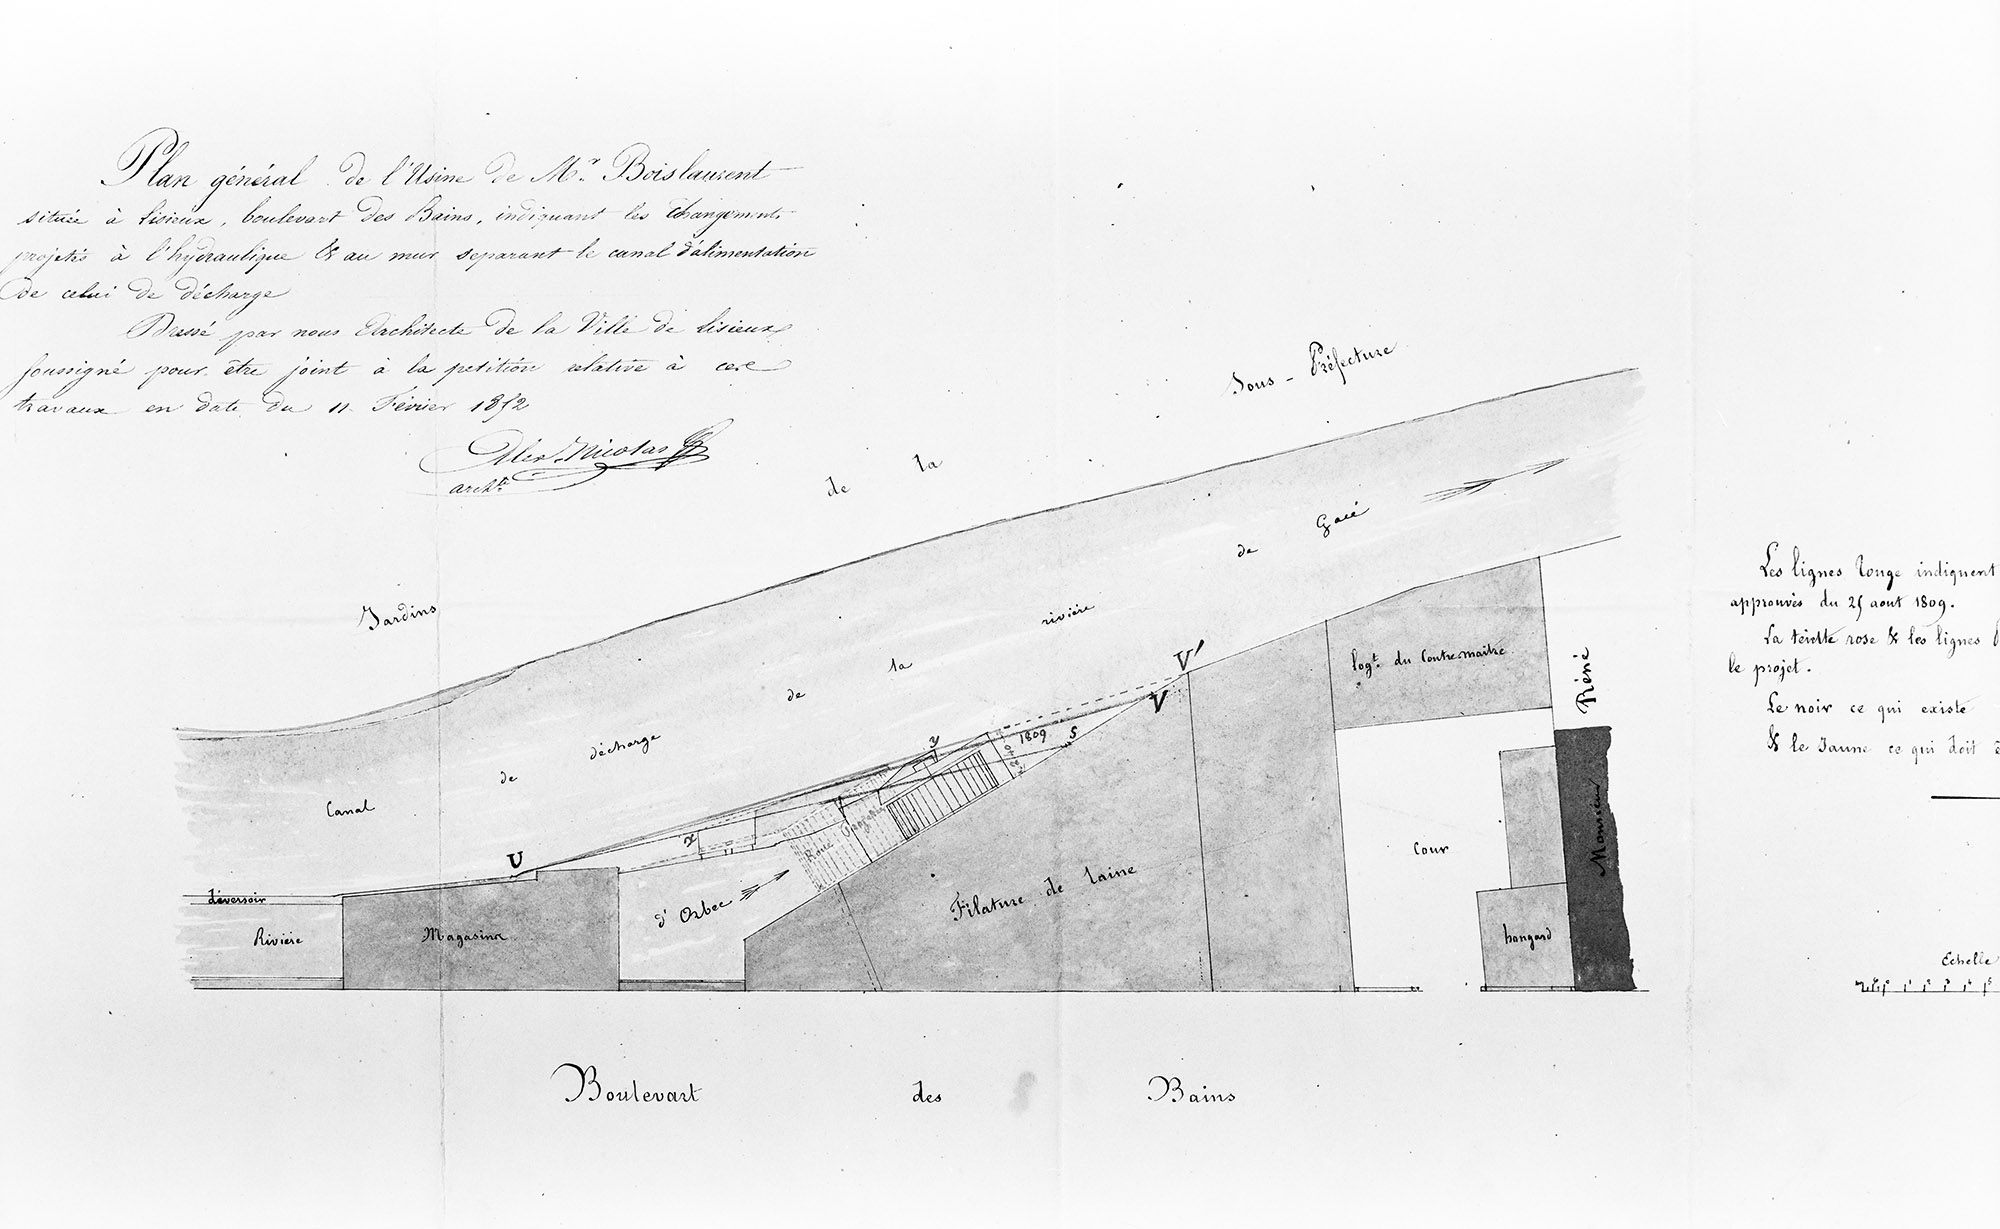 Plan général de l'Usine de Mr. Boislaurent
située à Lisieux, boulevart des Bains, indiquant les changements
projetés à l'hydraulique & au mur separant le canal d'alimentation
de celui de décharge
Dressé par nous Architecte de la Ville de Lisieux
soussigné pour être joint à la petition relative à ces
travaux en date du 11 Février 1852
Alex. Nicolas
archte
Jardins de la Sous-Préfecture
Canal de décharge de la rivière de Gacé
U
V
V'
x
y
S
1809
déversoir
Rivière
d'Orbec
Magasin
Roue
Filature de laine
logt. du Contremaitre
Cour
hangard
Monsieur Réné
Boulevart des Bains
Les lignes rouge indiquent
approuvés du 25 aout 1809.
La teinte rose & les lignes
le projet.
Le noir ce qui existe
& le Jaune ce qui doit
Echelle
1 2 3 4 5